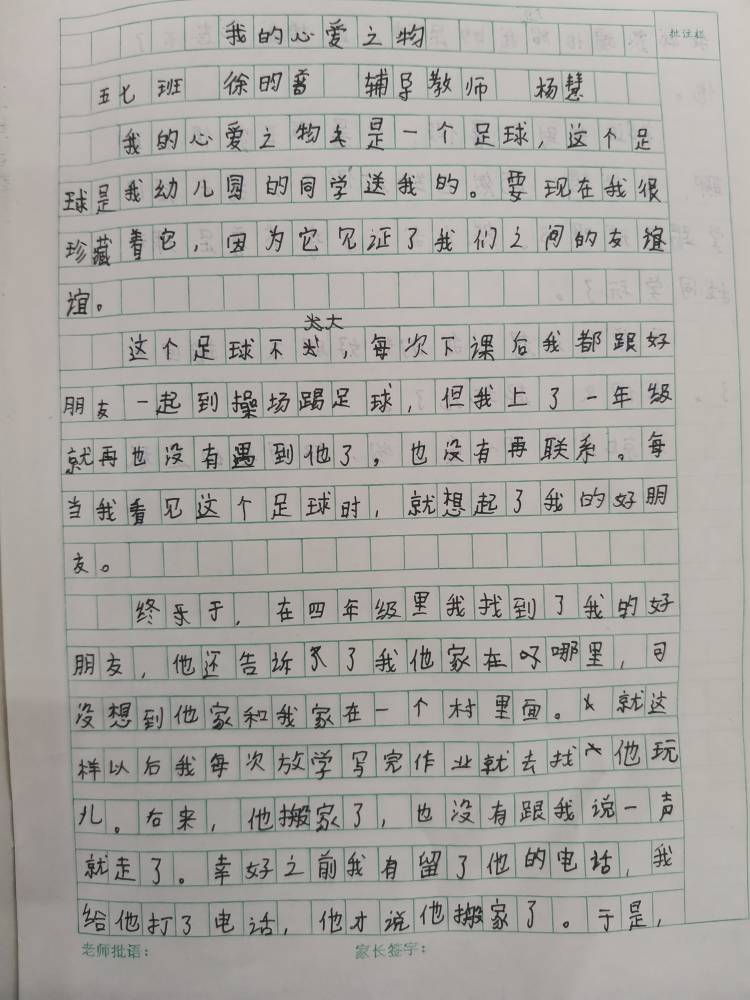 我的心爱之物
批注栏
五七班 徐的音 辅导教师 杨慧
我的心爱之物是一个足球，这个足
球是我幼儿园的同学送我的。要现在我很
珍藏着它，因为它见证了我们之间的友谊
谊。
大
这个足球不，每次下课后我都跟好
朋友一起到操场踢足球，但我上了一年级
就再也没有遇到他了，也没有再联系。每
当我看见这个足球时，就想起了我的好朋
友。
终于，在四年级里我找到了我的好
朋友，他还告诉了我他家在哪里，可
没想到他家和我家在一个村里面。就这
样以后我每次放学写完作业就去找他玩
儿。右来，他搬家了，也没有跟我说一声
就走了。幸好之前我有留了他的电话，我
给他打了电话，他才说他搬家了。于是，
老师批语： 家长签字：